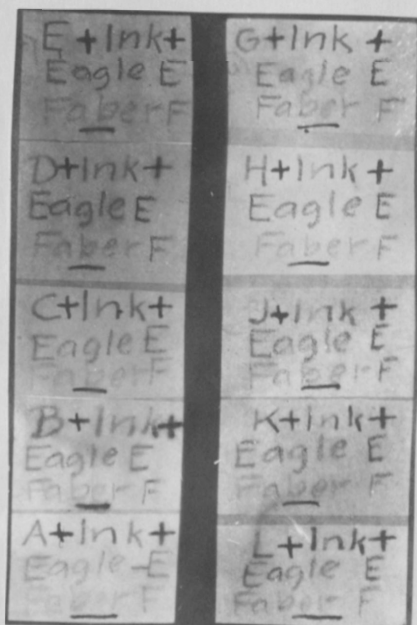 E + Ink +
Eagle E
Faber F
D + Ink +
Eagle E
Faber F
C + Ink +
Eagle E
Faber F
B + Ink +
Eagle E
Faber F
A + Ink +
Eagle E
Faber F
G + Ink +
Eagle E
Faber F
H + Ink +
Eagle E
Faber F
J + Ink +
Eagle E
Faber F
K + Ink +
Eagle E
Faber F
L + Ink +
Eagle E
Faber F